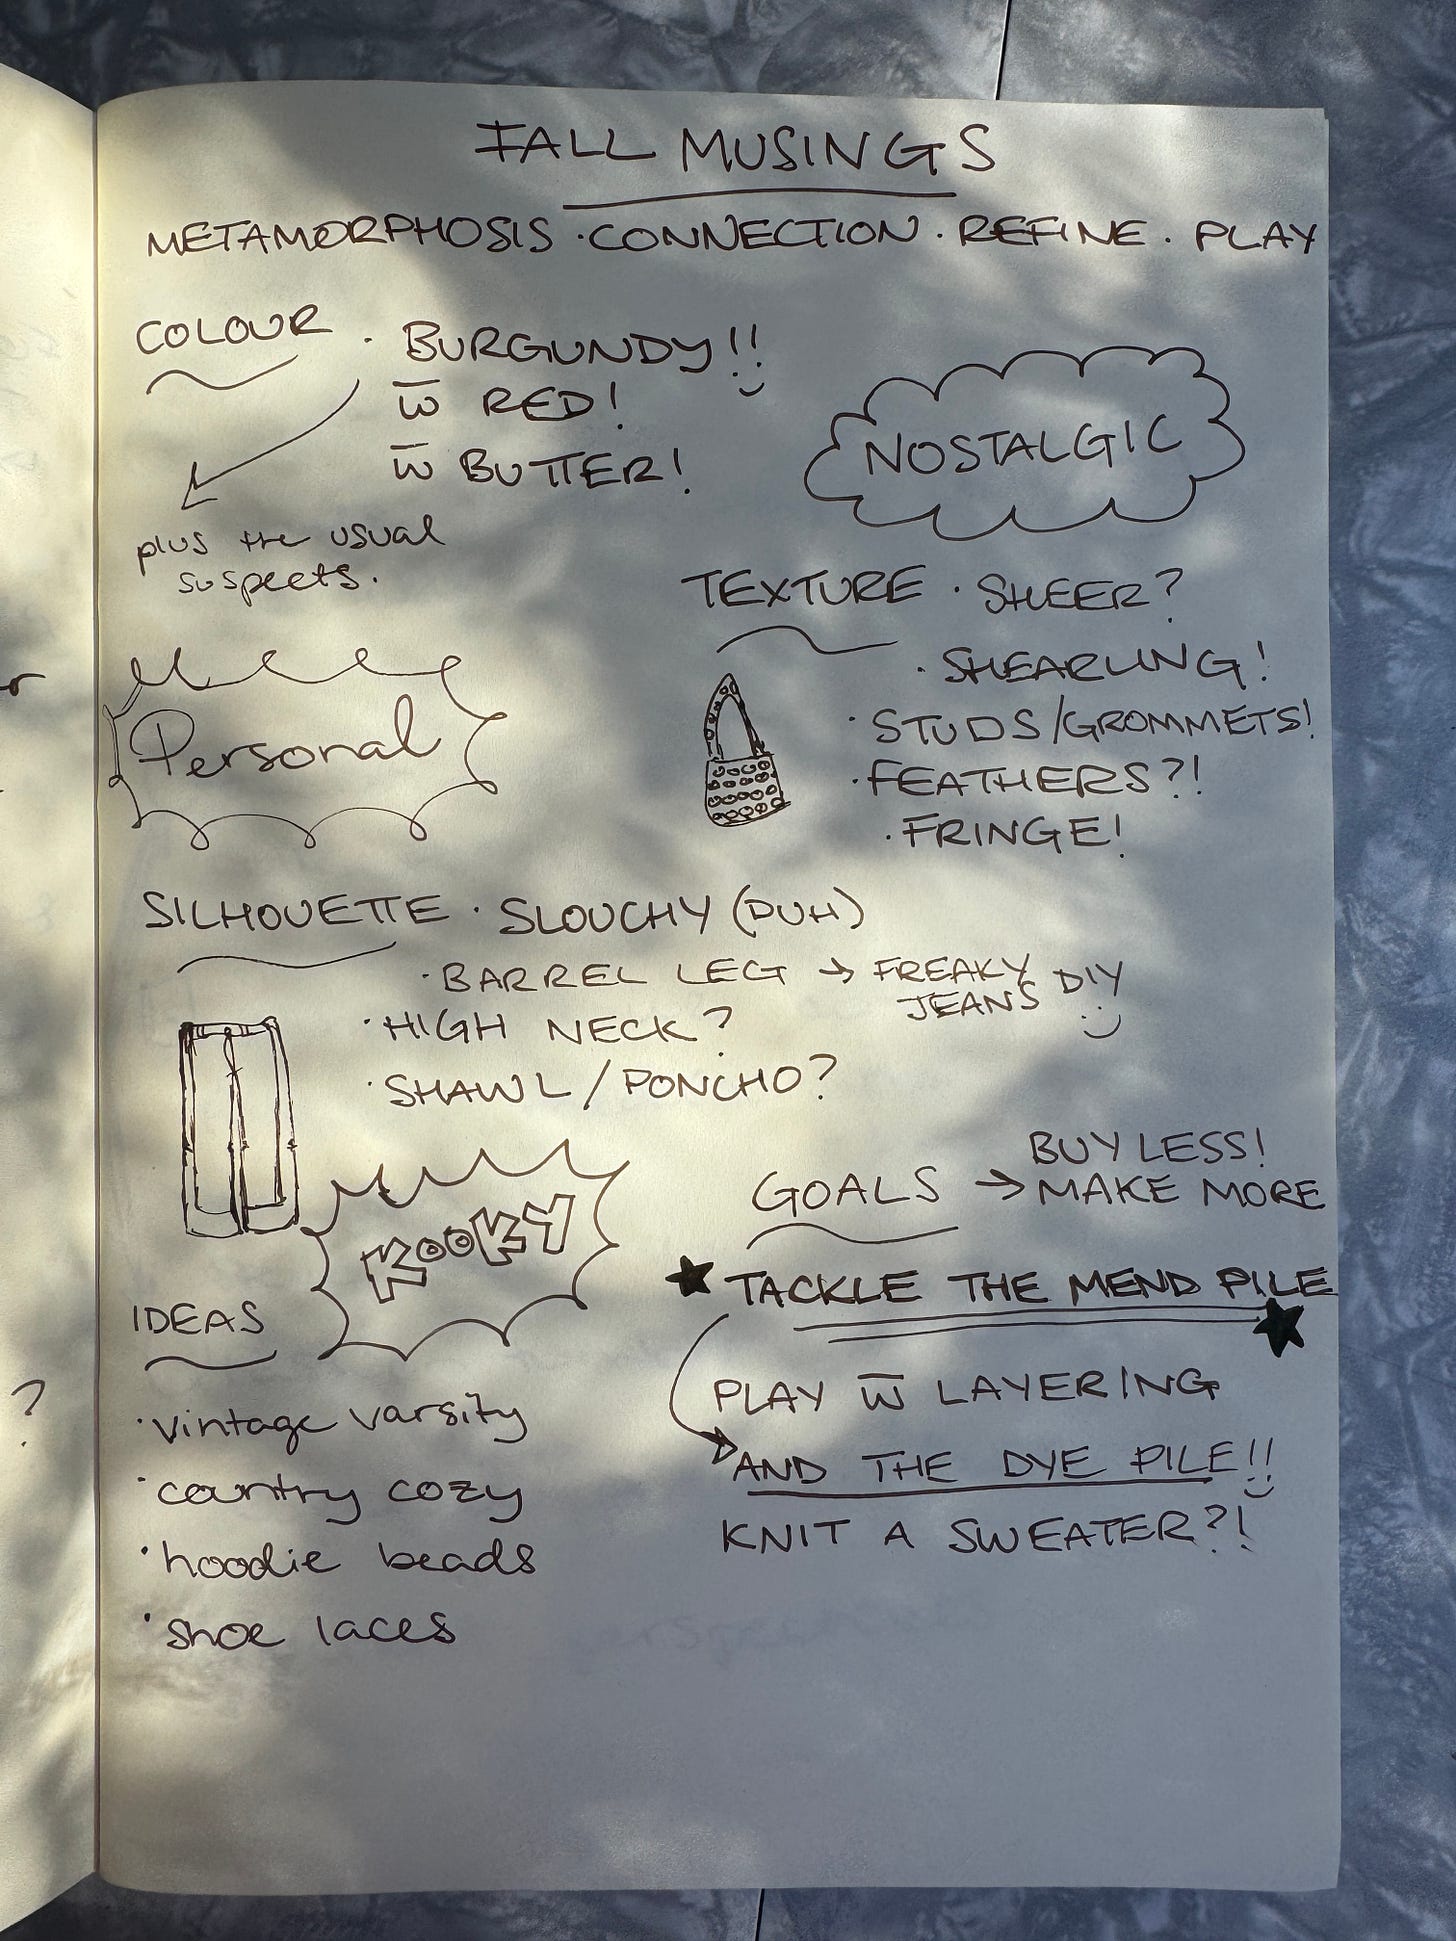 FALL MUSINGS
METAMORPHOSIS · CONNECTION · REFINE · PLAY
COLOUR · BURGUNDY!!
w̅ RED!
w̅ BUTTER!
plus the usual
suspects.
NOSTALGIC
TEXTURE · SHEER?
· SHEARLING!
· STUDS/GROMMETS!
· FEATHERS?!
· FRINGE!
Personal
SILHOUETTE · SLOUCHY (DUH)
· BARREL LEG → FREAKY DIY
JEANS
· HIGH NECK?
· SHAWL/PONCHO?
KOOKY
GOALS → BUY LESS!
MAKE MORE
★ TACKLE THE MEND PILE ★
PLAY w̅ LAYERING
AND THE DYE PILE!!
KNIT A SWEATER?!
IDEAS
· vintage varsity
· country cozy
· hoodie beads
· shoe laces
?